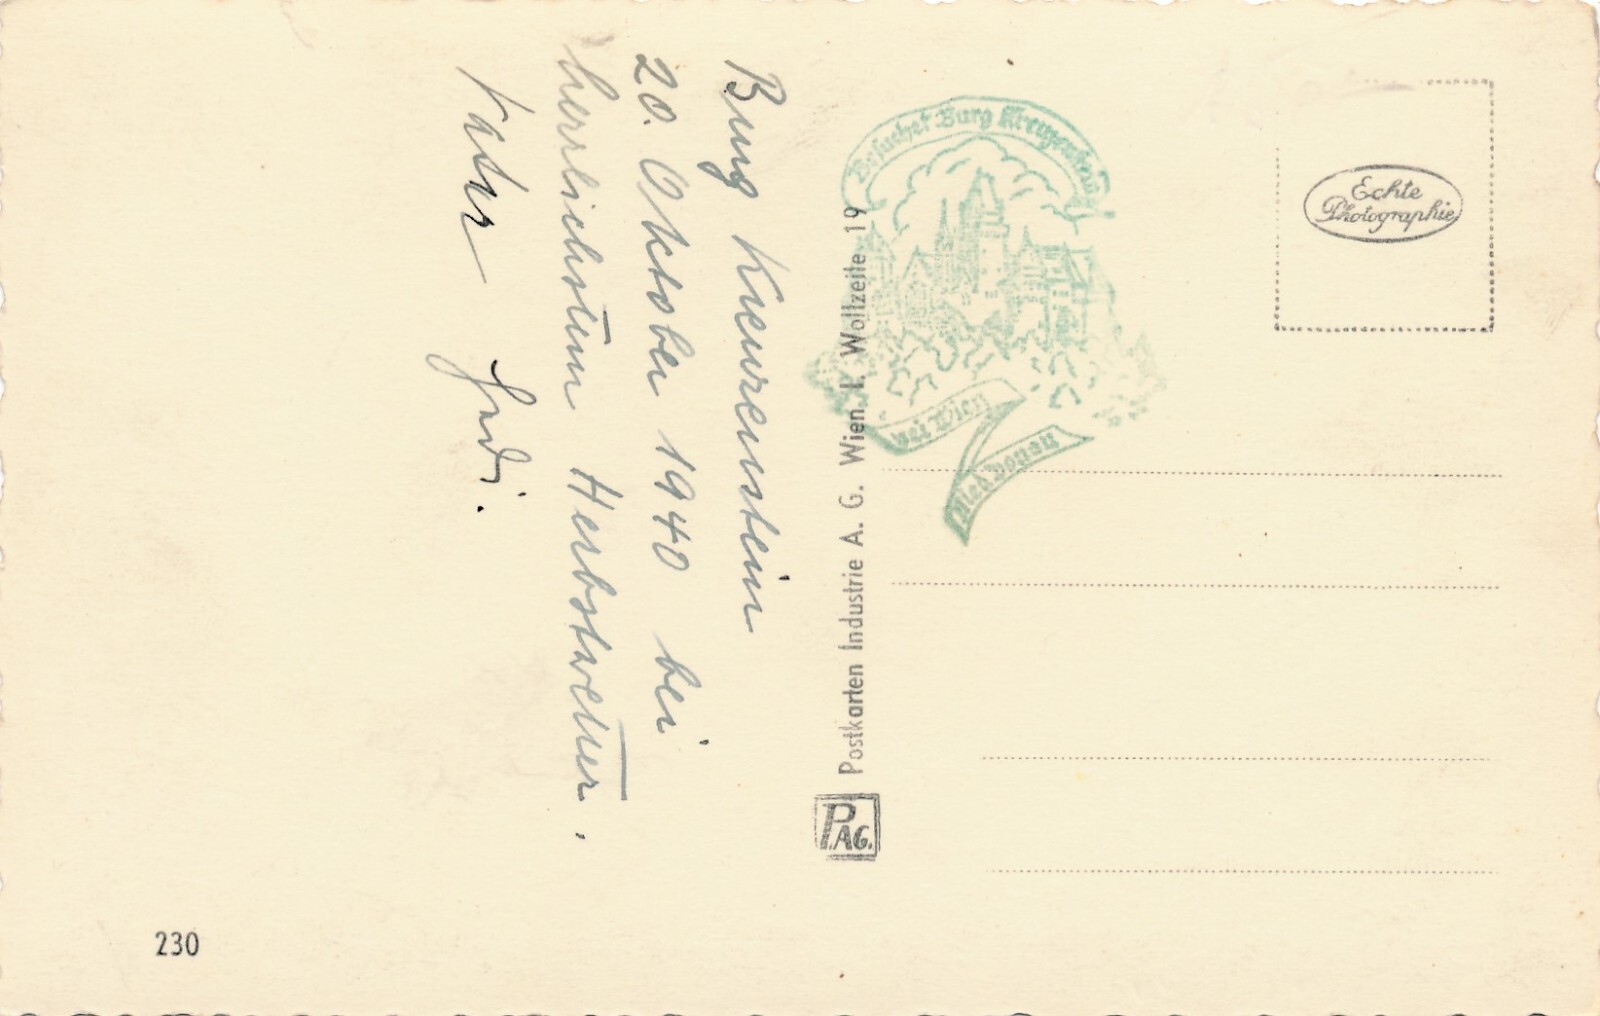 Burg Kreuzenstein
20. Oktober 1940 bei
herrlichstem Herbstwetter.
Vater
Besuchet Burg Kreuzenstein
bei Wien
Nied. Donau
Postkarten Industrie A. G. Wien, I. Wollzeile 19
P.AG.
Echte
Photographie
230